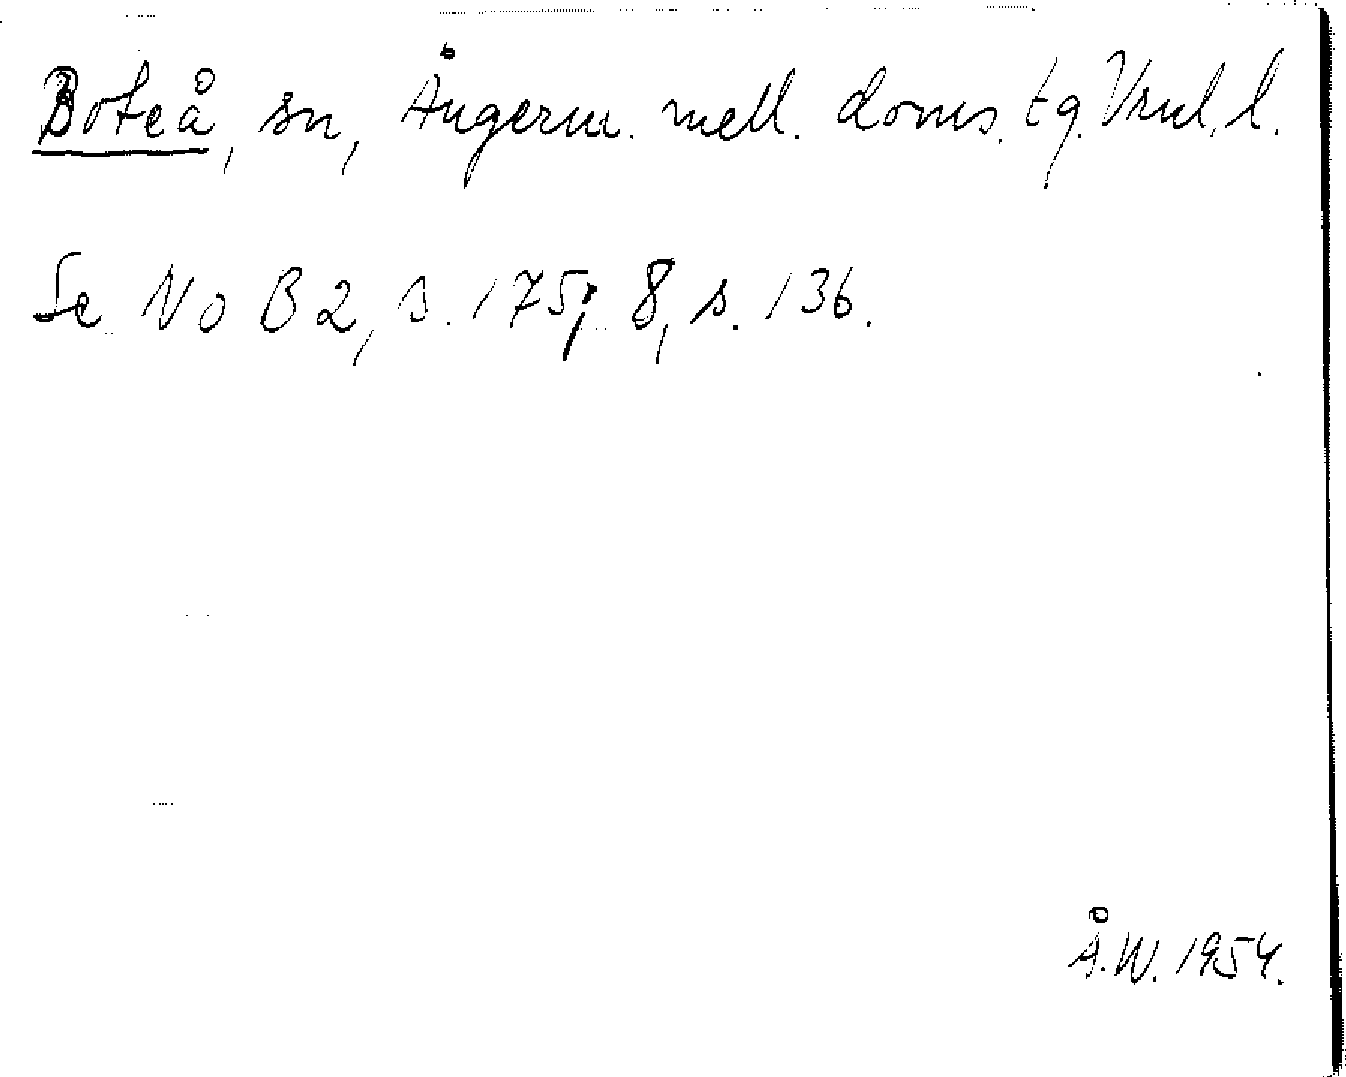 Boteå, sn, Ångerm. mell. doms. tg. Vrnl. l.
Se NoB 2, s. 175; 8, s. 136.
Å.W. 1954.